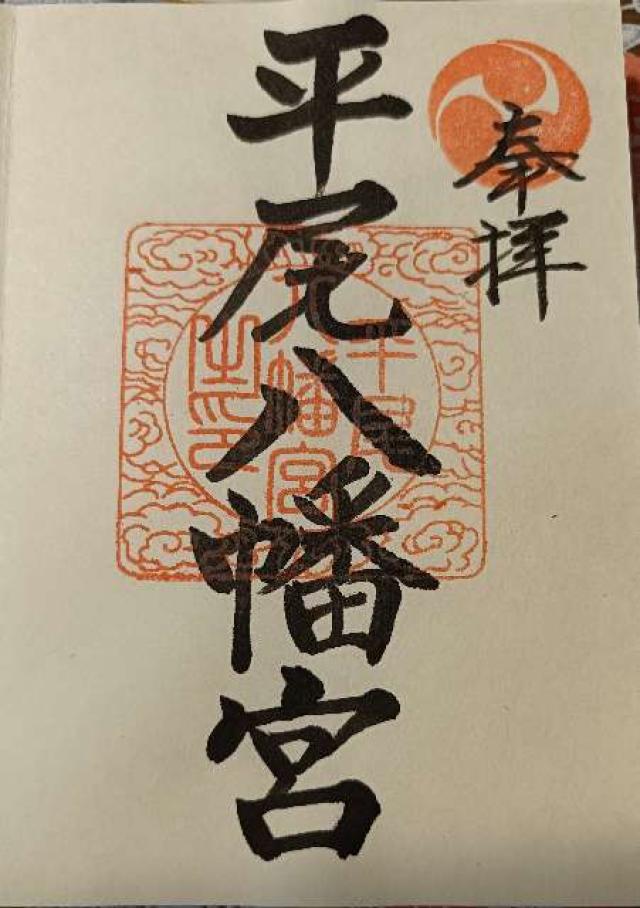 奉拝
平尾八幡宮
平尾
八幡宮
之印